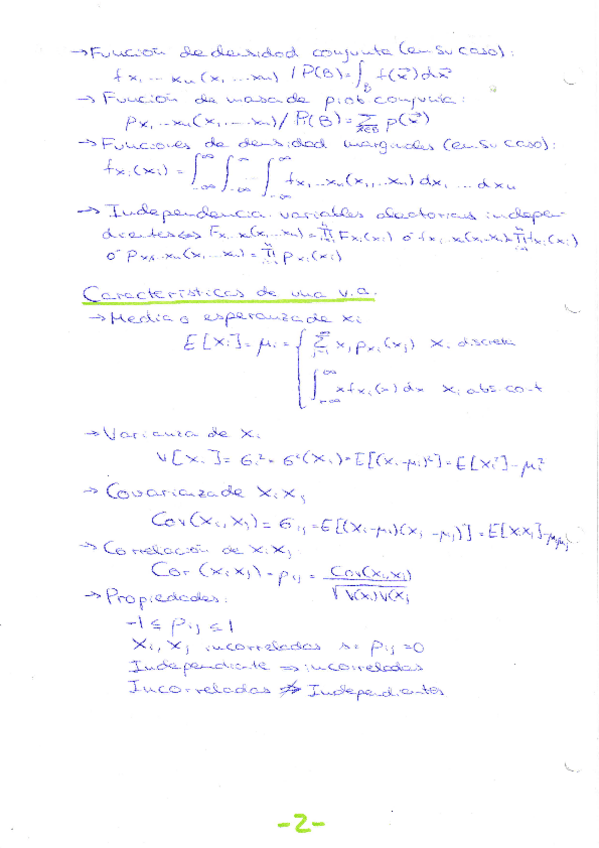 → Función de densidad conjunta (en su caso):
f x₁ ... xₙ (x₁, ... xₙ) / P(B) = ∫_B f(x⃗) dx⃗
→ Función de masa de prob conjunta:
p x₁ ... xₙ (x₁, ... xₙ) / P(B) = Σ_{x⃗∈B} p(x⃗)
→ Funciones de densidad marginales (en su caso):
f xᵢ (xᵢ) = ∫_{-∞}^{∞} ∫_{-∞}^{∞} ∫_{-∞}^{∞} f x₁ ... xₙ (x₁, ... xₙ) dx₁ ... dxₙ
→ Independencia: variables aleatorias indepen-
dientes ⇔ F x₁..xₙ (x₁...xₙ) = ∏_{i=1}^{n} F xᵢ (xᵢ) ó f x₁..xₙ (x₁..xₙ) = ∏_{i=1}^{n} f xᵢ (xᵢ)
ó p x₁..xₙ (x₁, ... xₙ) = ∏_{i=1}^{n} p xᵢ (xᵢ)
Características de una v.a.
→ Media o esperanza de xᵢ
E[Xᵢ] = μᵢ = { Σ_{j=1}^{∞} xⱼ p xᵢ (xⱼ) Xᵢ discreta
∫_{-∞}^{∞} x f xᵢ (x) dx Xᵢ abs. cont
→ Varianza de Xᵢ
V[Xᵢ] = σᵢ² = σ²(Xᵢ) = E[(Xᵢ-μᵢ)²] = E[Xᵢ²] - μᵢ²
→ Covarianza de Xᵢ Xⱼ
Cov(Xᵢ, Xⱼ) = σᵢⱼ = E[(Xᵢ-μᵢ)(Xⱼ-μⱼ)] = E[XᵢXⱼ] - μᵢμⱼ
→ Correlación de Xᵢ Xⱼ
Cor (Xᵢ Xⱼ) = ρᵢⱼ = Cov(Xᵢ,Xⱼ) / √V(Xᵢ)V(Xⱼ)
→ Propiedades:
-1 ≤ ρᵢⱼ ≤ 1
Xᵢ, Xⱼ incorreladas si ρᵢⱼ = 0
Independiente ⇒ incorreladas
Incorreladas ⇏ Independientes
-2-